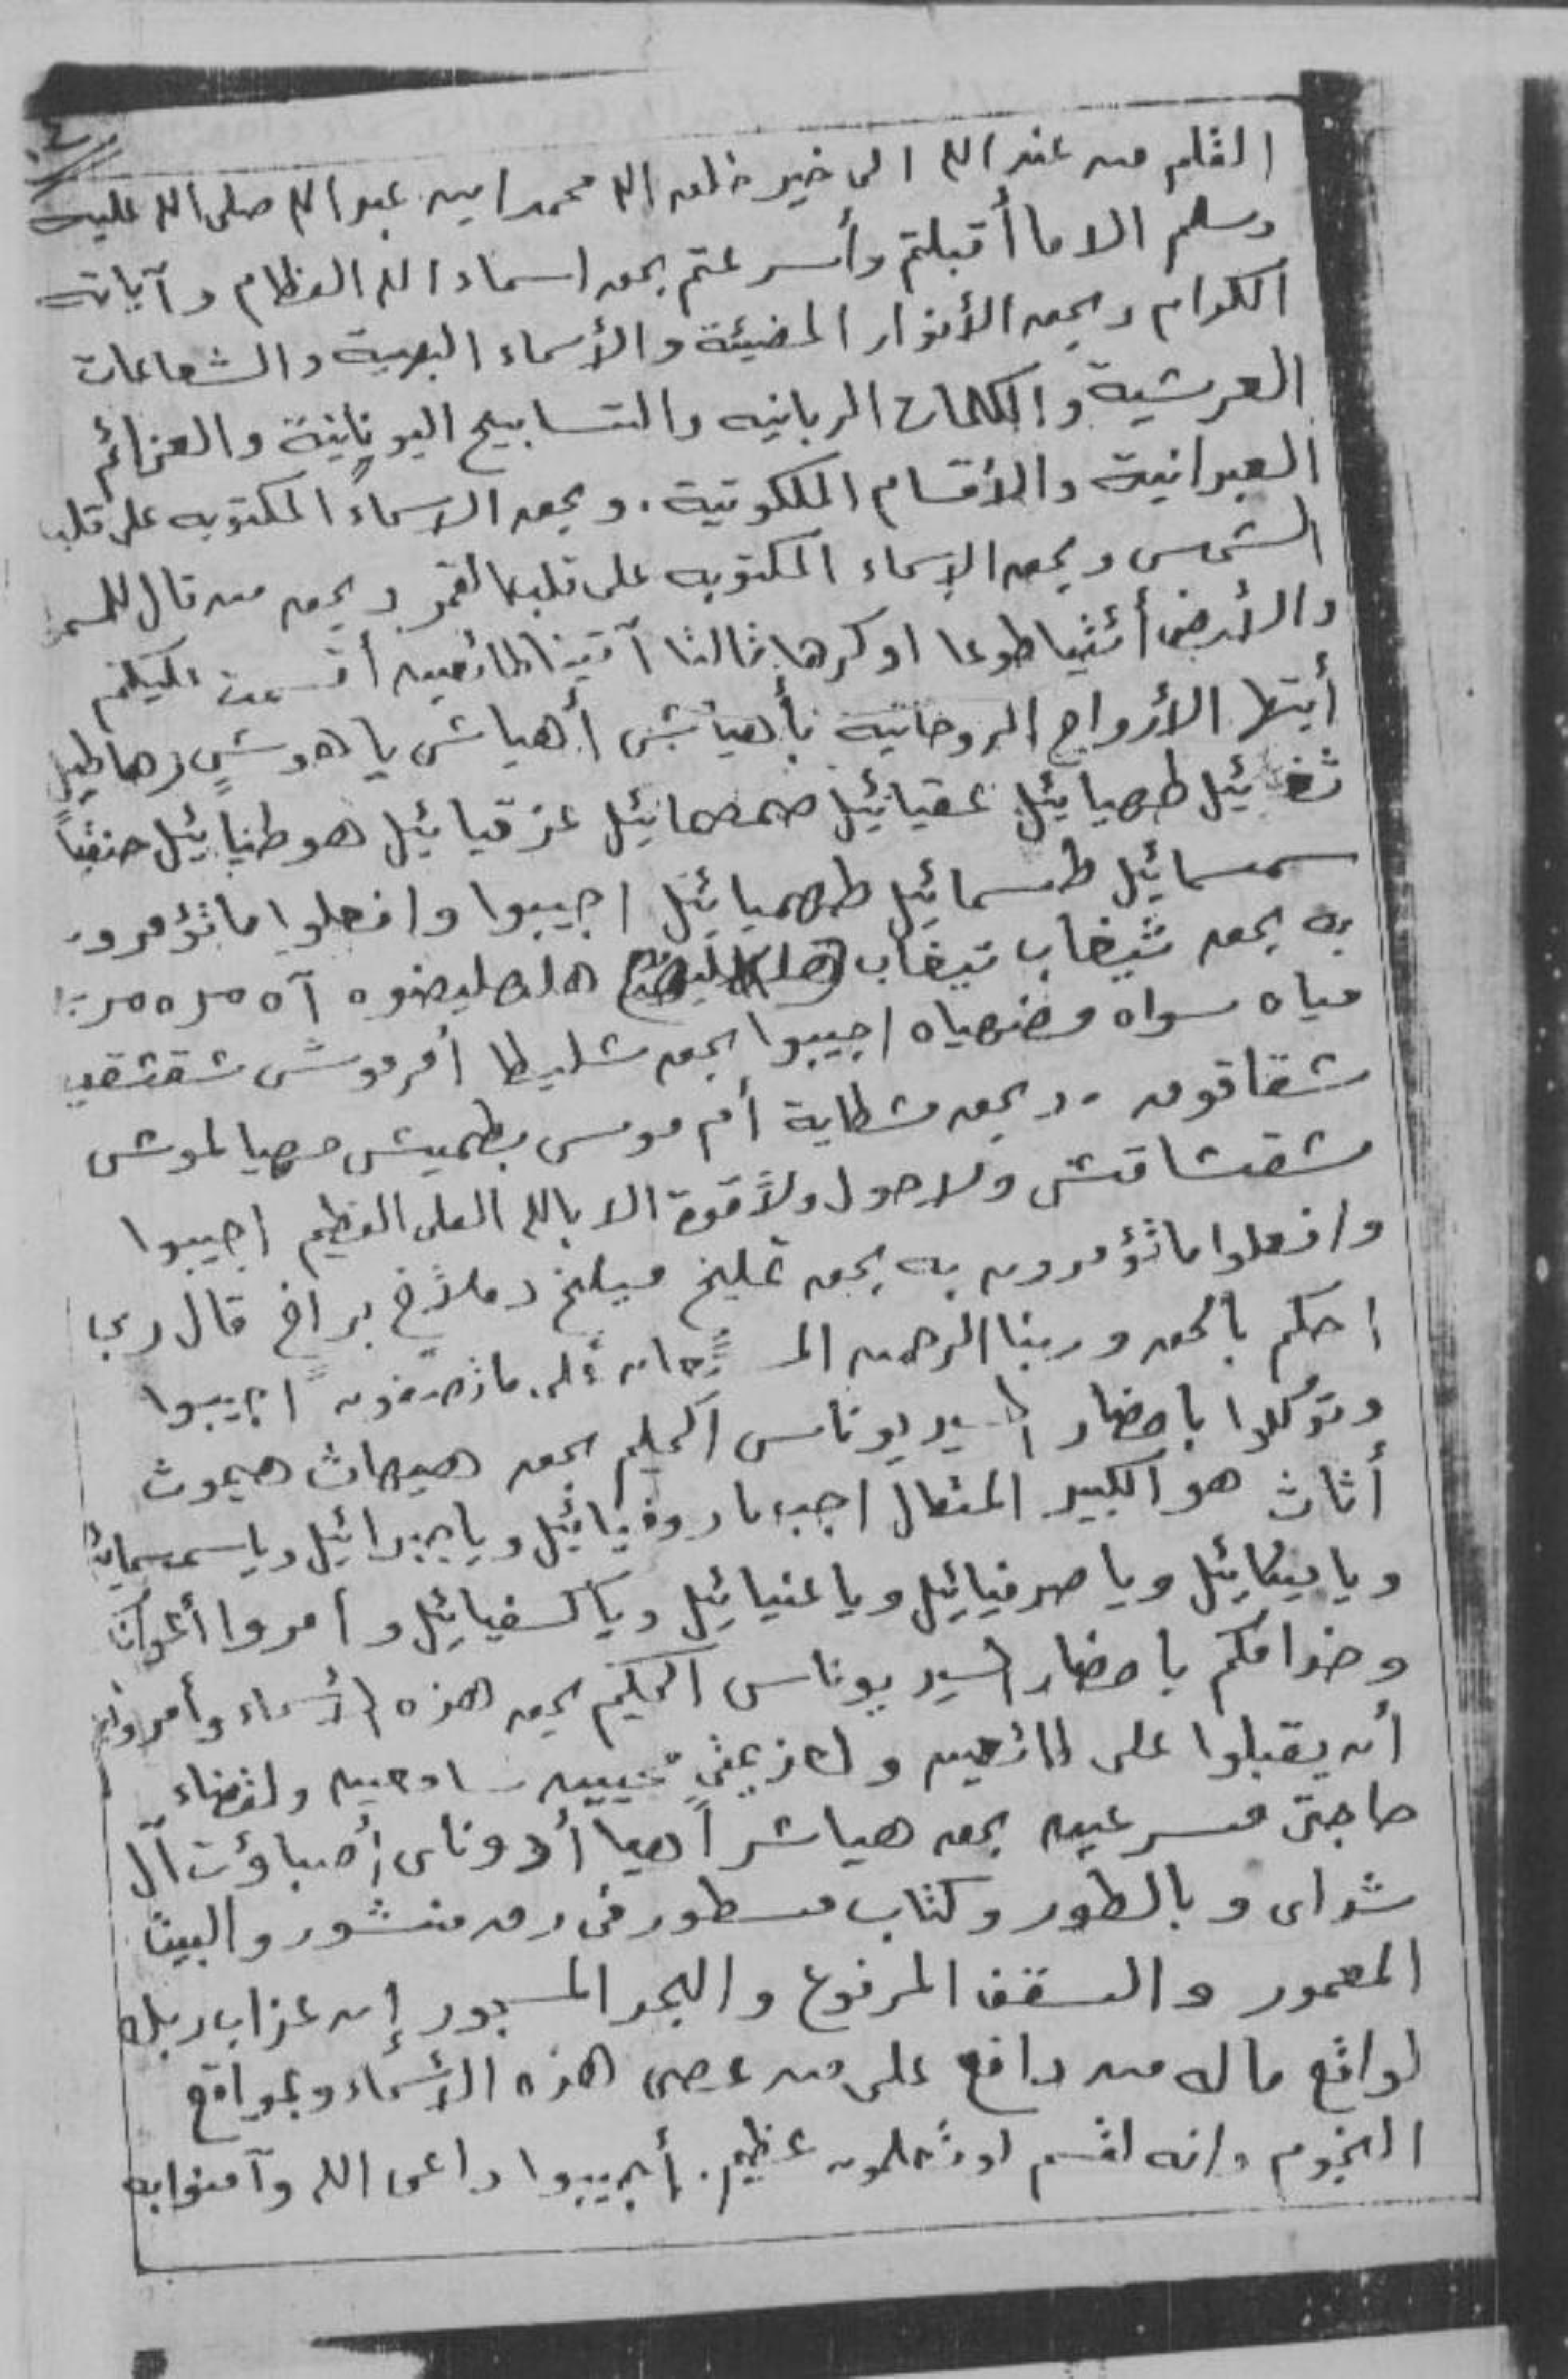 القلم من عند الله الى خير خلق الله محمد ابن عبد الله صلى الله عليه
وسلم الا ما أقبلتم وأسرعتم بحق اسماء الله العظام وآياته
الكرام وبحق الأنوار المضيئة والأسماء البهية والشعاعات
العرشية والكلمات الربانيه والتسابيح اليونانية والعزائم
العبرانية والأقسام الملكوتية. وبحق الاسماء المكتوبه على قلب
الشمس وبحق الاسماء المكتوبه على قلب القمر وبحق من قال للسم
والأرض أئتيا طوعا او كرها قالتا آتينا طائعين أقسمت عليكم
أيتها الأرواح الروحانية بأهياش أهياش ياهوش زهاطيل
طهيائيل عقيائيل صمصمائيل عزقيائيل هوطيائيل
سمسمائيل طسمائيل طهميائيل اجيبوا وافعلوا ما تؤمرون
به بحق شيغاب تيغاب هلهليضوه آه
مياه سواه اجيبوا بحق شليطا أفرموش شقشقيه
شقاقون . وبحق مشطاية أم موس بطميش مهيا لموش
مشقشاقش ولا حول ولا قوة الا بالله العلى العظيم اجيبوا
وافعلوا ما تؤمرون به بحق تمليخ ميلخ وملاخ براخ قال رب
احكم بالحق وربنا الرحمن المستعان على ما تصفون اجيبوا
وتوكلوا باحضار السيد يوناس الحكيم بحق هيهات هيموث
أثاث هو الكبير المتعال اجب يا روفيائيل ويا جبرائيل ويا سمسمائيل
ويا ميكائيل ويا صرفيائيل ويا عنيائيل ويا كسفيائيل وامروا أعوانكم
وخدامكم باحضار السيد يوناس الحكيم بحق هذه الأسماء وأمروهم
أن يقبلوا على طائعين ولعزيمتي مجيبين سامعين ولقضاء
حاجتى مسرعين بحق هياشر اهيا أدوناى أصباؤت آل
شداى وبالطور وكتاب مسطور فى رق منشور والبيت
المعمور والسقف المرفوع والبحر المسجور إن عذاب ربك
لواقع ما له من دافع على من عصى هذه الأسماء وبمواقع
النجوم وانه لقسم لو تعلمون عظيم. أجيبوا داعى الله وآمنوا به